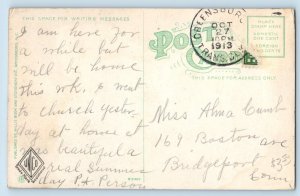 THIS SPACE FOR WRITING MESSAGES
I am here for
a while but
will be home
this wk. I went
to church yester-
day at home it
was beautiful a
real summer
day P. H. Person
POST CARD
GREENSBORO
OCT
27
PM
1913
TRANS. CLK.
PLACE
STAMP HERE
DOMESTIC
ONE CENT
FOREIGN
TWO CENTS
THIS SPACE FOR ADDRESS ONLY
Miss Alma
169 Boston
ave
Bridgeport
Conn